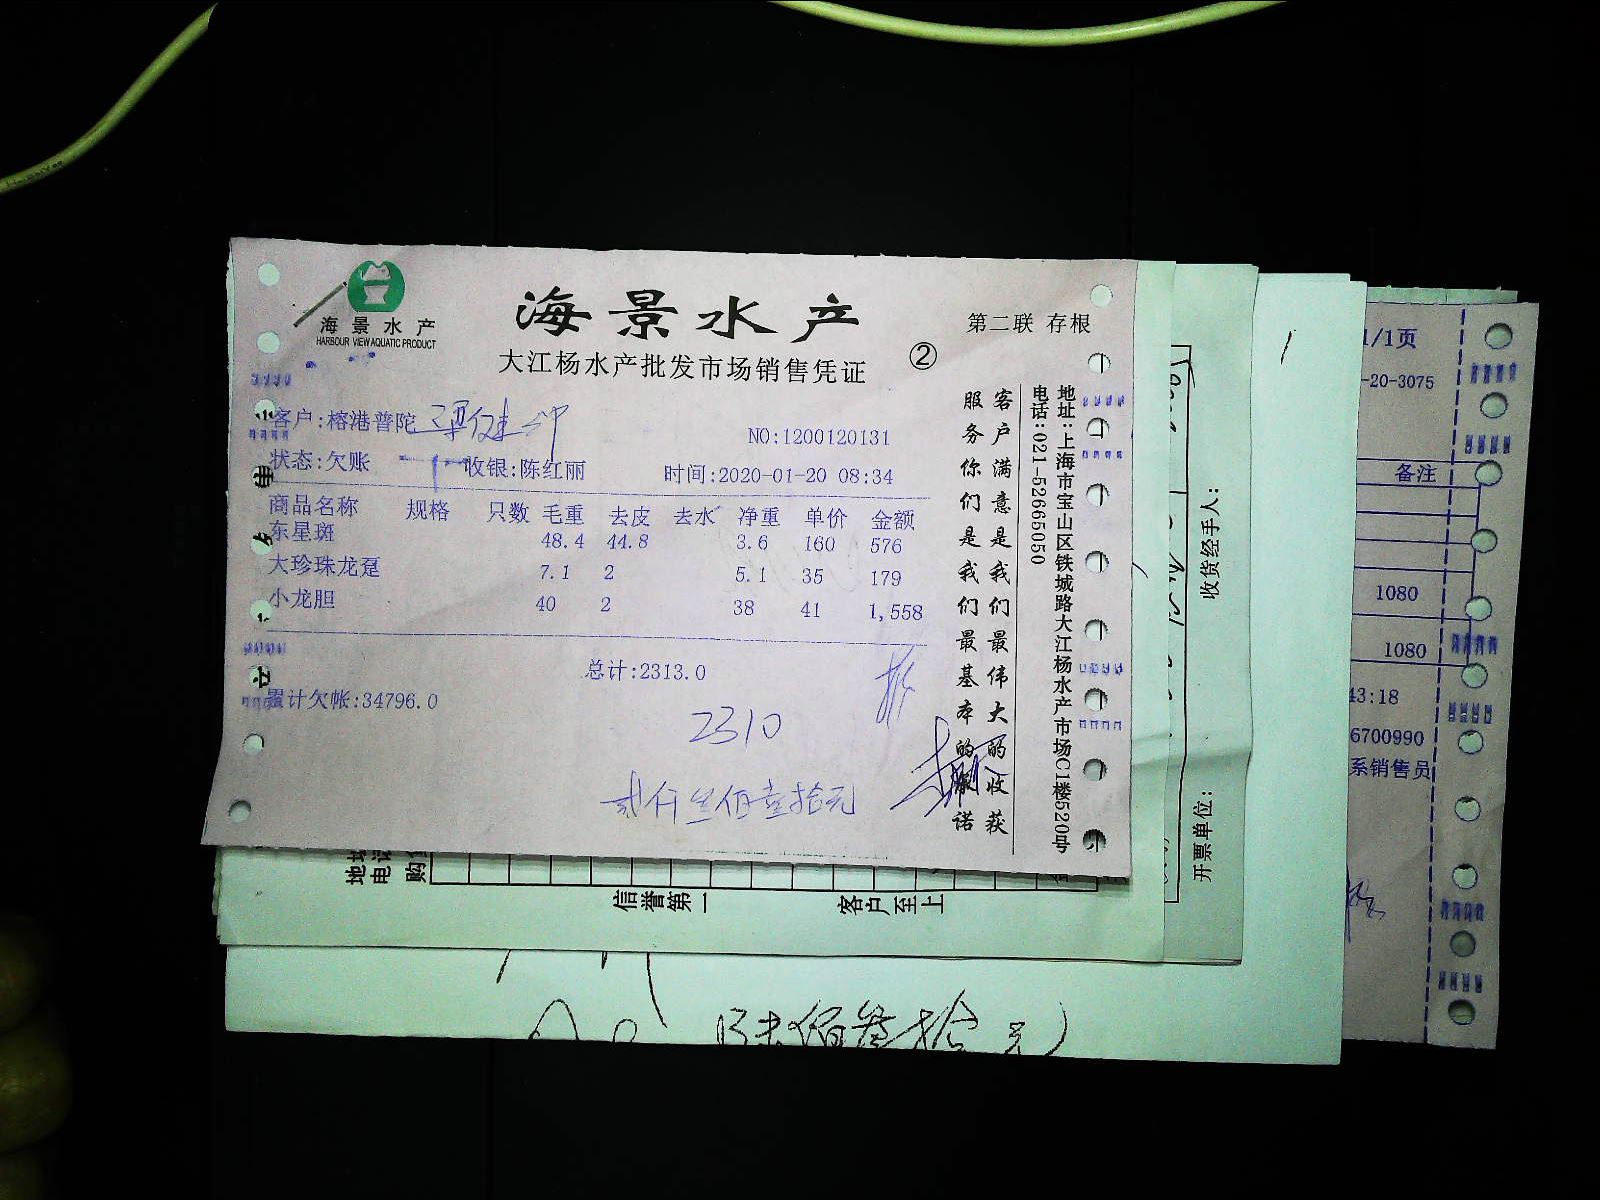 海景水产
HARBOUR VIEW AQUATIC PRODUCT
海景水产
大江杨水产批发市场销售凭证
②
第二联 存根
客户:榕港普陀
NO:1200120131
状态:欠账 收银:陈红丽 时间:2020-01-20 08:34
商品名称 规格 只数 毛重 去皮 去水 净重 单价 金额
东星斑 48.4 44.8 3.6 160 576
大珍珠龙趸 7.1 2 5.1 35 179
小龙胆 40 2 38 41 1,558
总计:2313.0
累计欠帐:34796.0
2310
贰仟叁佰壹拾元
客户满意是我们最伟大的收获
服务你们是我们最基本的承诺
地址:上海市宝山区铁城路大江杨水产市场C1楼520号
电话:021-52665050
收货经手人:
开票单位:
地址
电话
购
信誉第一
客户至上
陆佰叁拾元)
1/1页
-20-3075
备注
1080
1080
43:18
6700990
系销售员